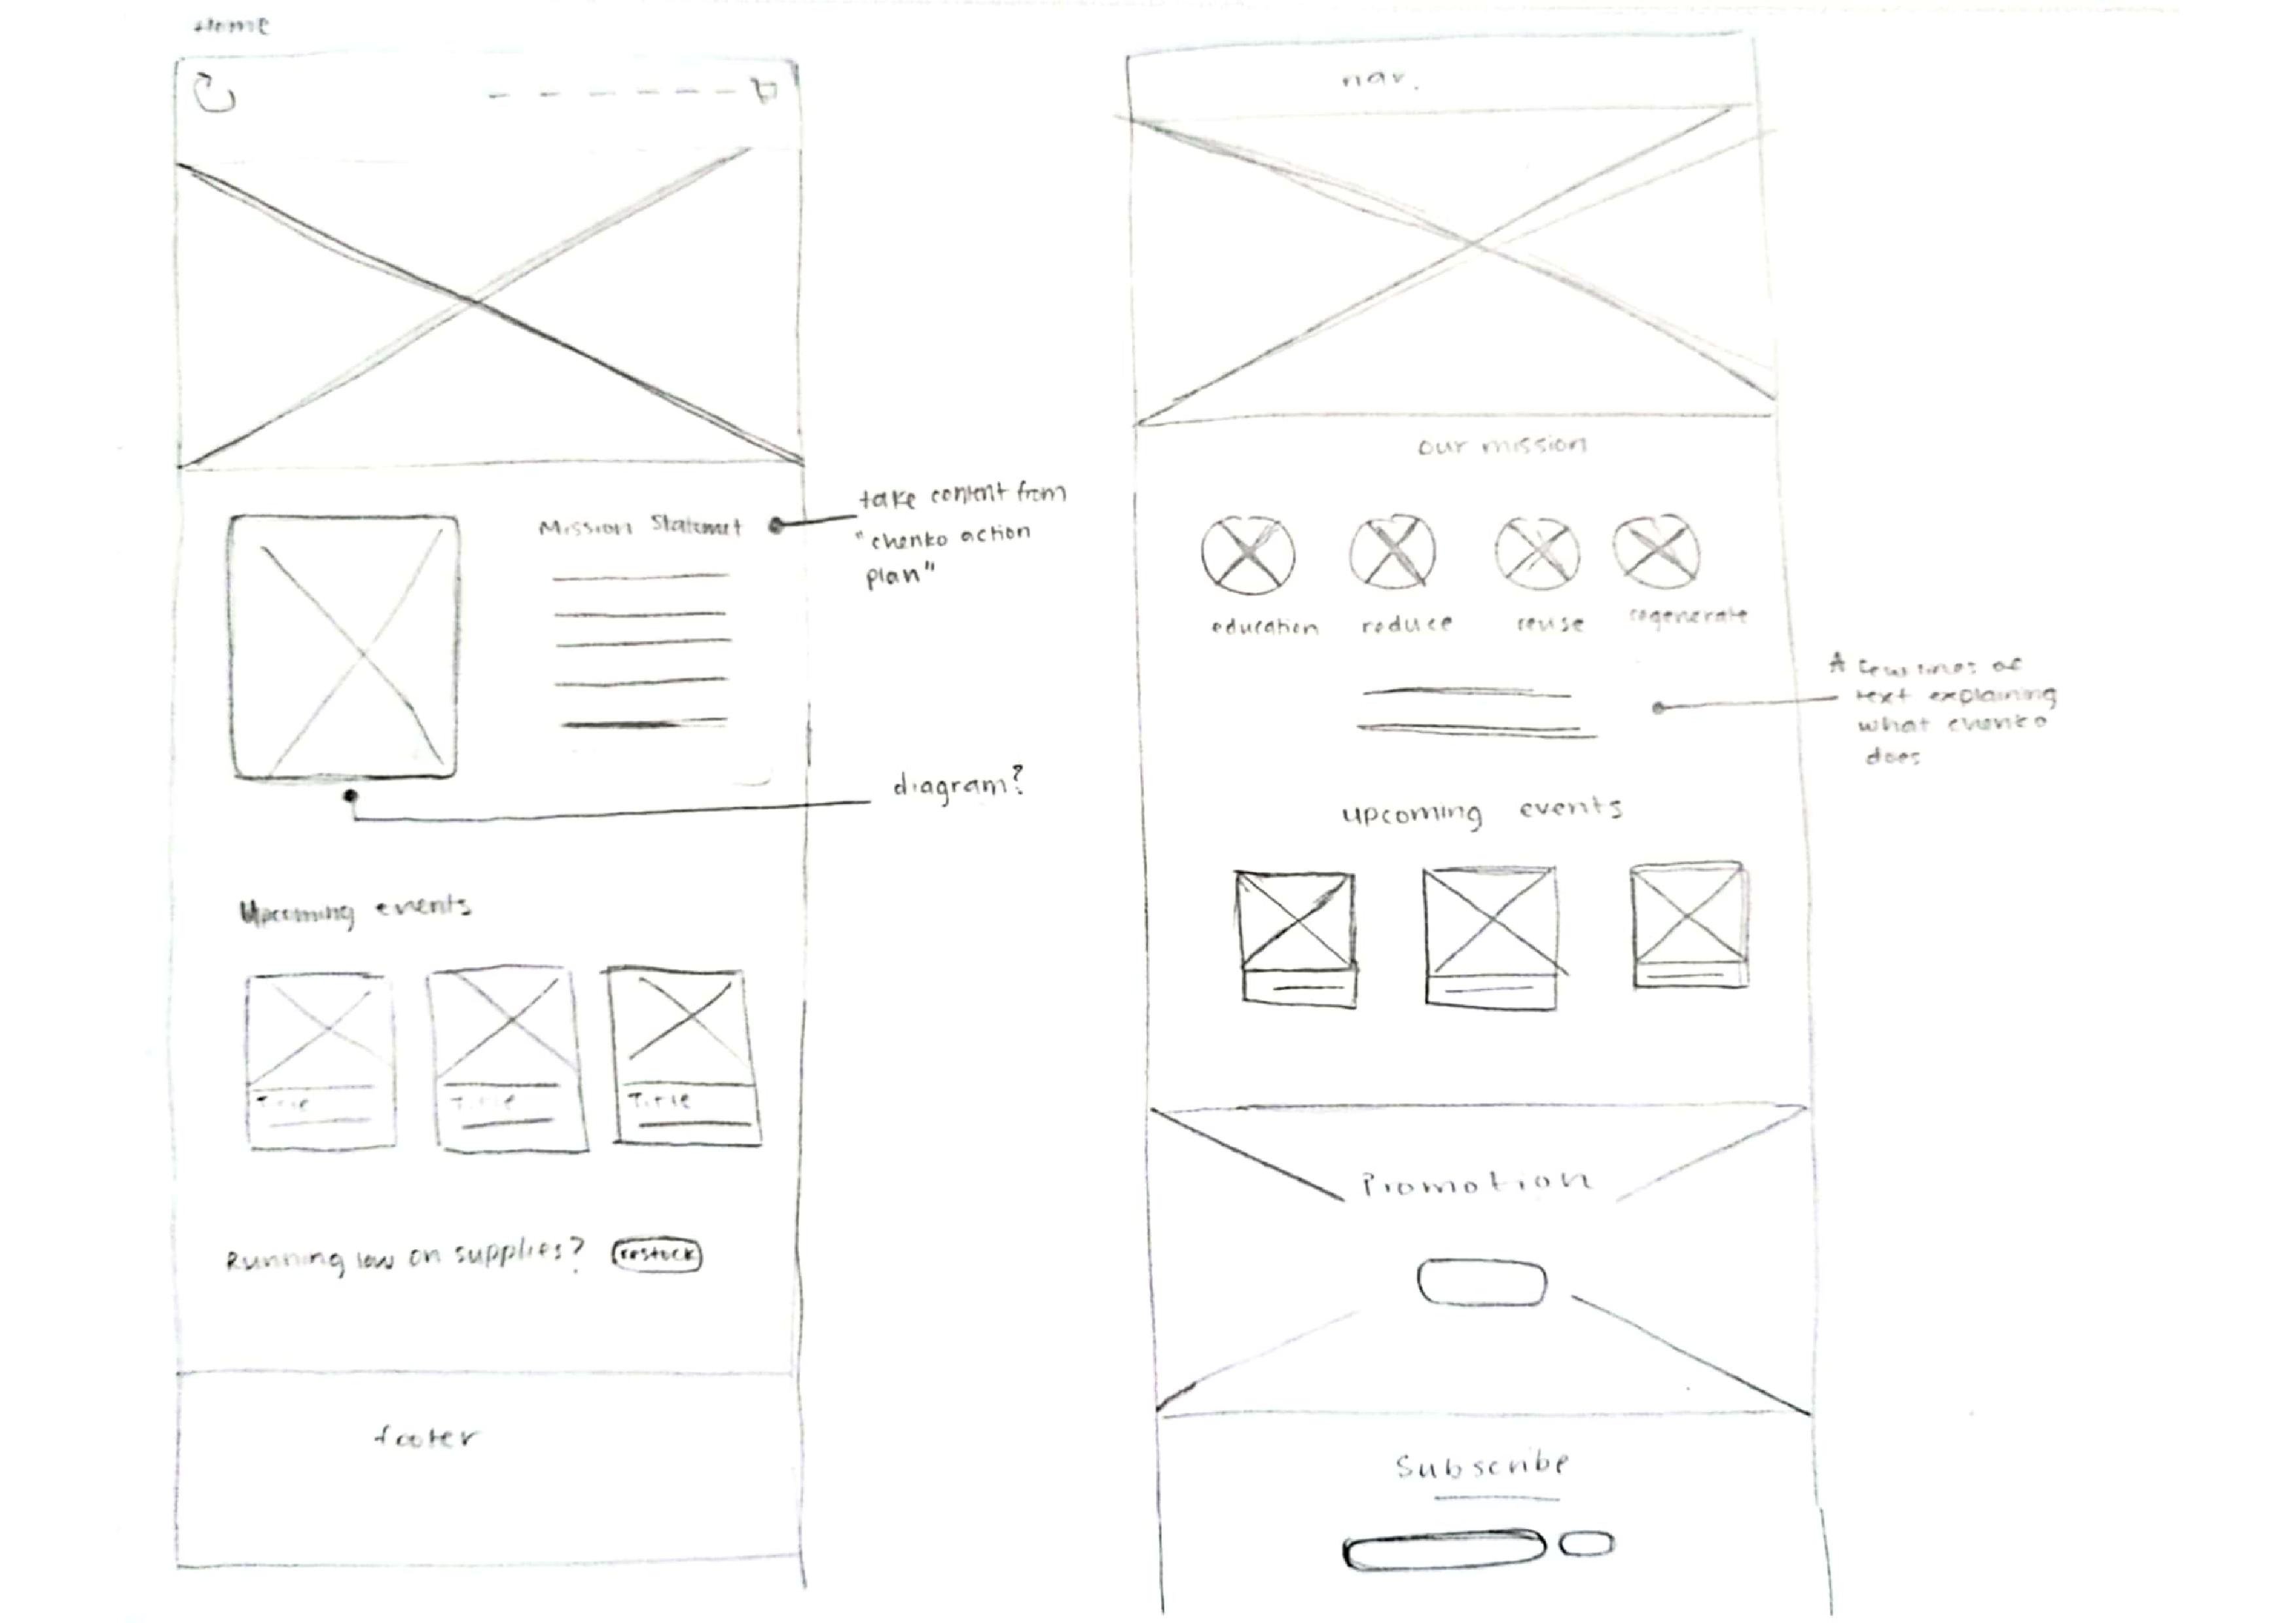 Home
Mission Statemet
take content from
"chenko action
plan"
diagram?
Upcoming events
Title
Title
Title
Running low on supplies?
restock
footer
nav.
our mission
education
reduce
reuse
regenerate
A few lines of
text explaining
what chenko
does
upcoming events
Promotion
Subscribe